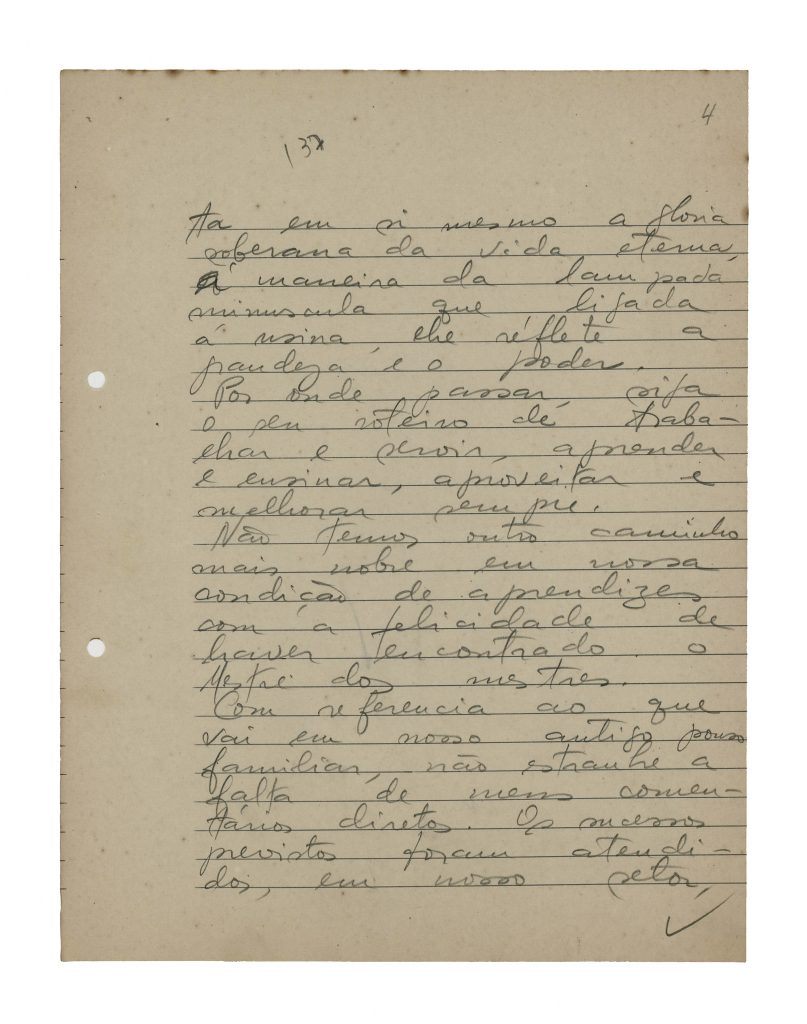 4
138
ta em si mesmo a gloria
soberana da vida eterna,
á maneira da lampada
minuscula que ligada
á usina, lhe reflete a
grandeza e o poder.
Por onde passar, siga
o seu roteiro de traba-
lhar e servir, aprender
e ensinar, aproveitar e
melhorar sempre.
Não temos outro caminho
mais nobre em nossa
condição de aprendizes
com a felicidade de
haver encontrado o
Mestre dos mestres.
Com referencia ao que
vai em nosso antigo pouso
familiar, não estranhe a
falta de meus comen-
tários diretos. Os sucessos
previstos foram atendi-
dos, em nosso setor,